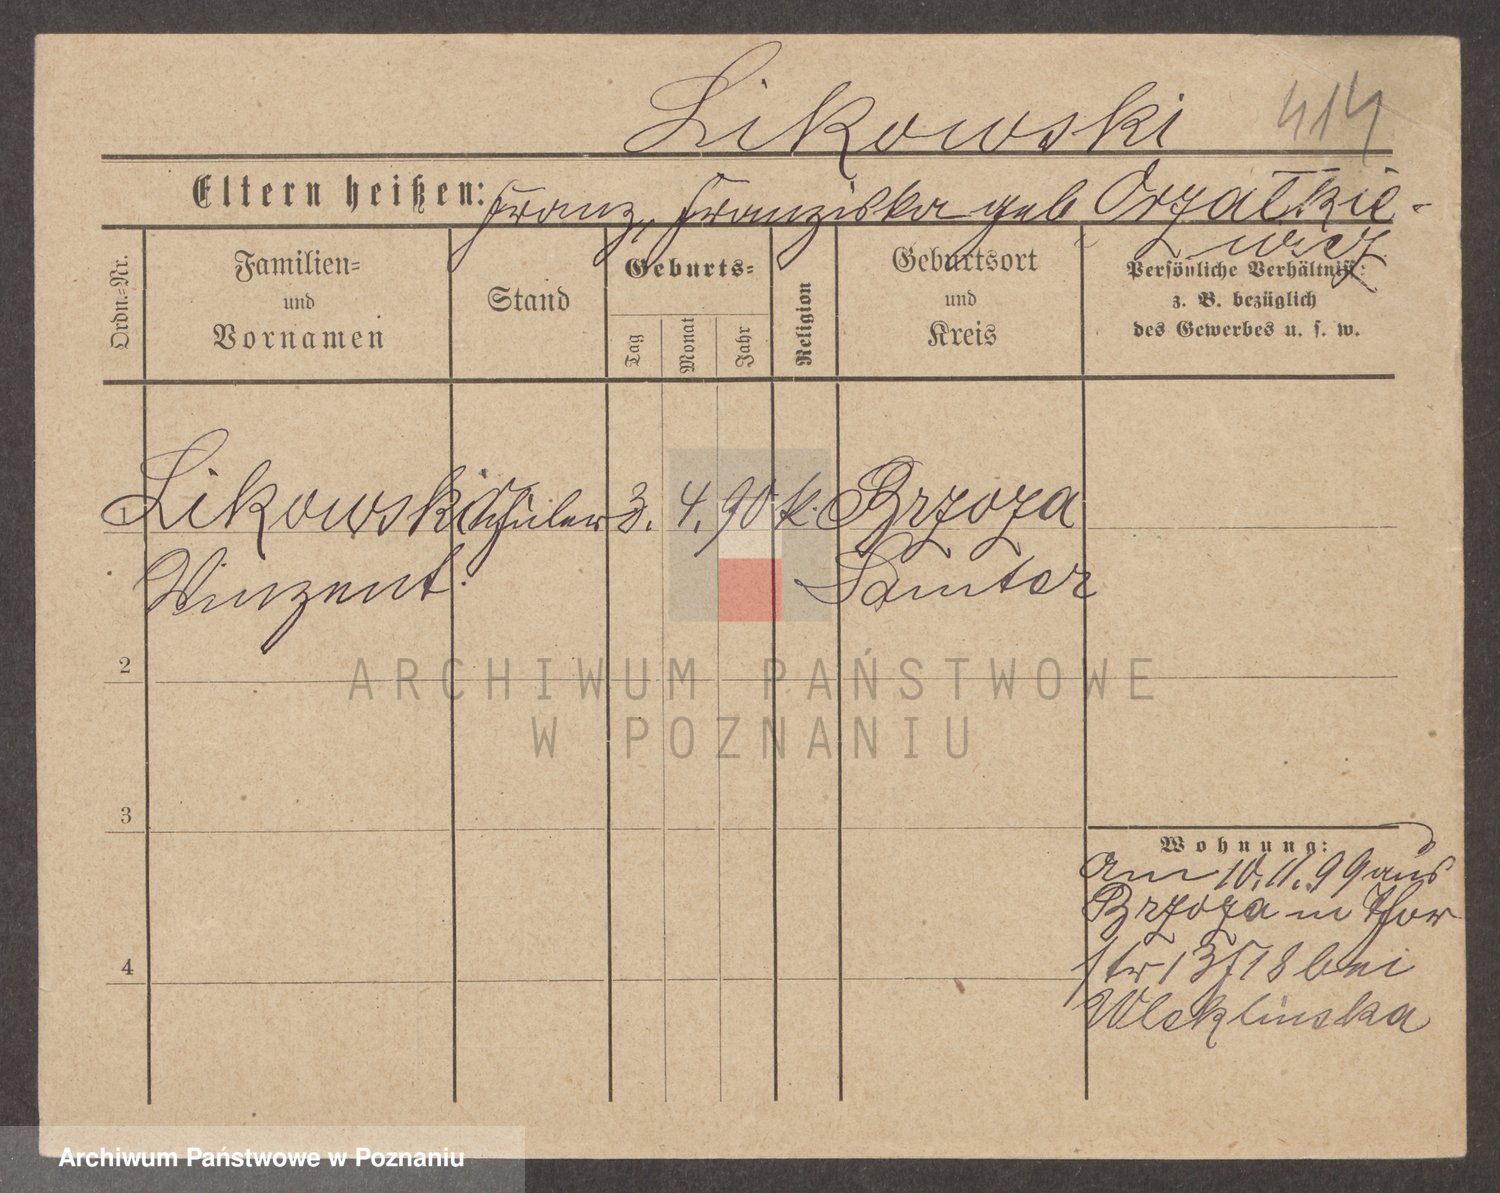 Likowski 414
Eltern heißen: Franz, Franziska geb Orzałkie-
wicz
Ordn.-Nr.
Familien-
und
Vornamen
Stand
Geburts-
Tag
Monat
Jahr
Religion
Geburtsort
und
Kreis
Persönliche Verhältniss:
z. B. bezüglich
des Gewerbes u. s. w.
Likowski Schüler 3. 4. 90 k. Brzoza
Winzent. Samter
2
3
4
Wohnung:
Am 10.11.99 aus
Brzoza in Thor
str 13/18 bei
ARCHIWUM PAŃSTWOWE
W POZNANIU
Archiwum Państwowe w Poznaniu